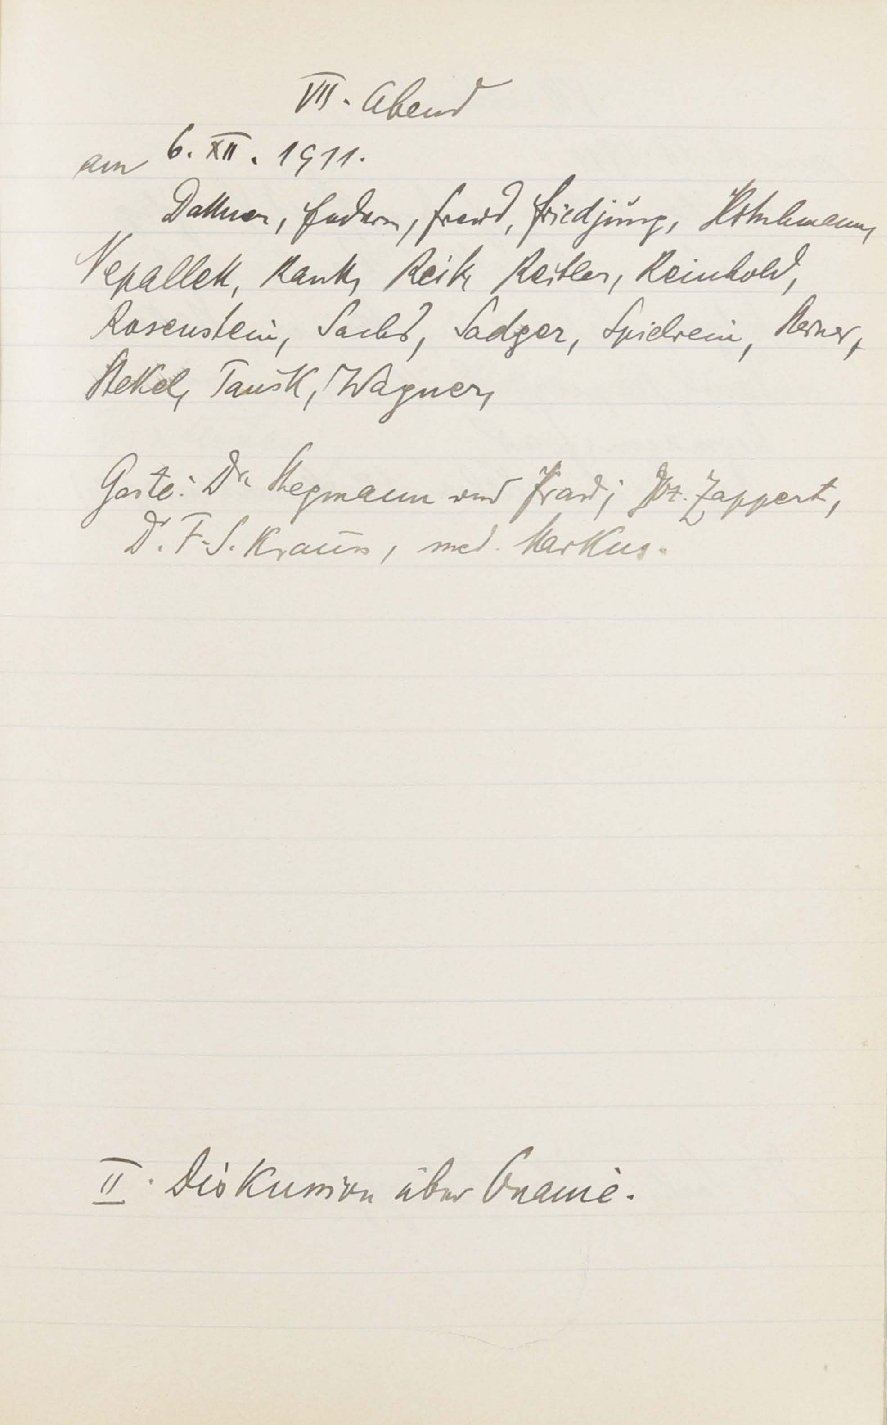 VII. Abend
am 6. XII. 1911.
Dattner, Federn, Freud, Friedjung, Hitschmann,
Nepallek, Rank, Reik, Reitler, Reinhold,
Rosenstein, Sachs, Sadger, Spielrein, Steiner,
Stekel, Tausk, Wagner,
Gäste: Dr. Stegmann und Frau; Doz. Zappert,
Dr. F. S. Krauss, med. Markus.
II. Diskussion über Onanie.